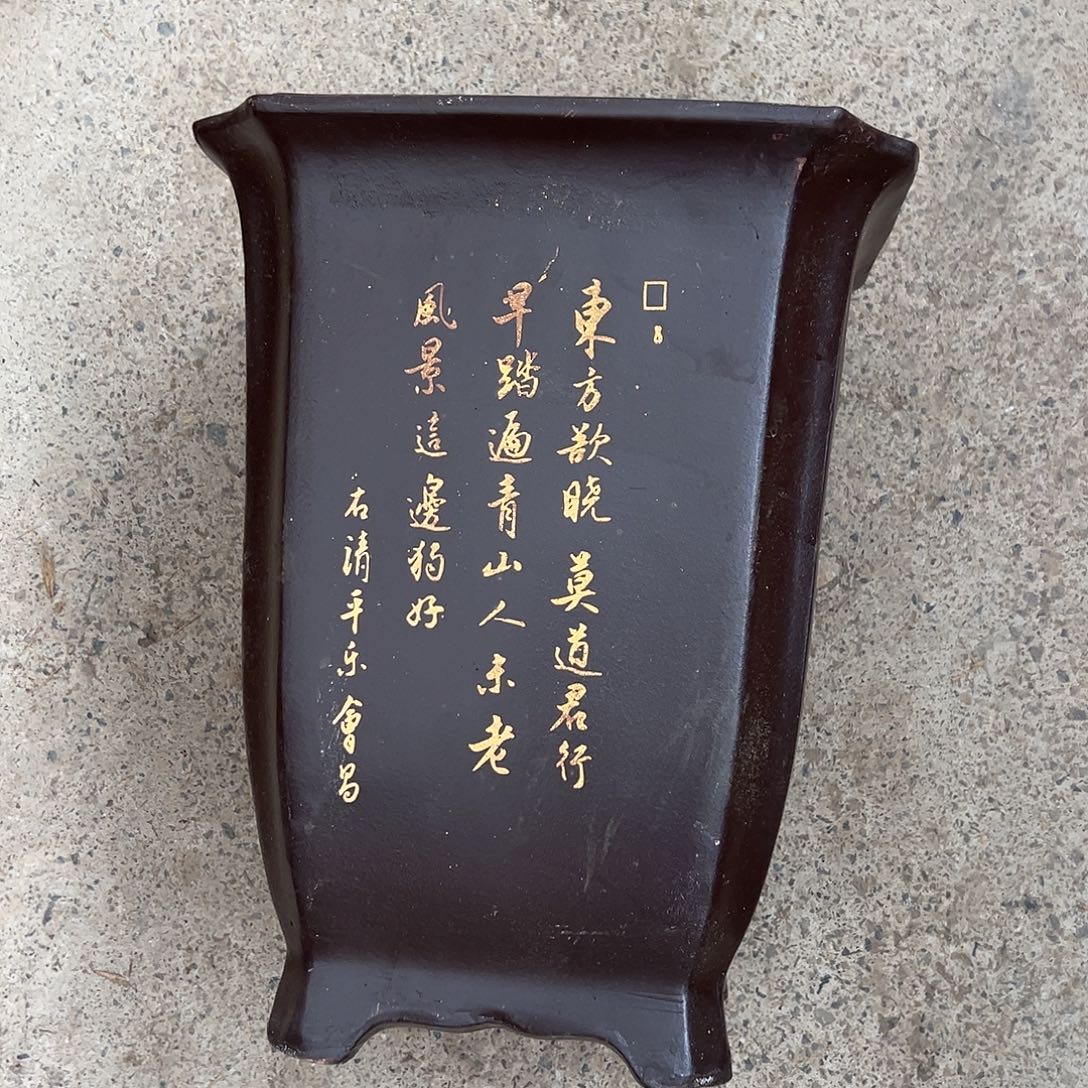 東方欲晓莫道君行
早踏遍青山人未老
風景這邊獨好
右清平乐會昌